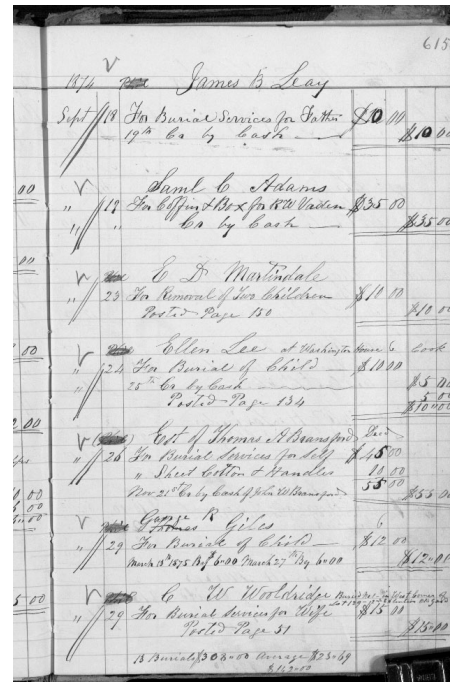 615
1874 James B Leay
Sept 18 For Burial Services for Father $10 00
19th Cr by Cash $10 00
Saml C Adams
" 19 For Coffin & Box for R W Vaden $35 00
" " Cr by Cash $35 00
E D Martindale
" 23 For Removal of Two Children $10 00
Posted Page 150 $10 00
Ellen Lee at Washington House 6 Cook
" 24 For Burial of Child $10 00
" 25th Cr by Cash $5 00
Posted Page 134 5 00
$10 00
Est of Thomas A Bransford Decd
" 26 For Burial Services for Self $45 00
" Sheet Cotton & Handles 10 00
Nov 21st Cr by Cash of John W Bransford 55 00 $55 00
George R Giles 6
" 29 For Burial of Child $12 00
March 13th 1875 By $6 00 March 27th By 6 00 $12 00
C W Wooldridge
" 29 For Burial Services for Wife $15 00
Posted Page 31 $15 00
13 Burials $308 00 Average $23 69